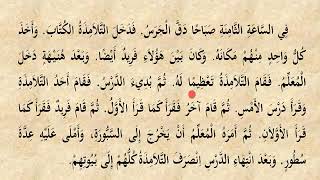 فِي السَّاعَةِ الثَّامِنَةِ صَبَاحًا دَقَّ الْجَرَسُ. فَدَخَلَ التَّلَامِذَةُ الْكُتَّابَ. وَأَخَذَ
كُلُّ وَاحِدٍ مِنْهُمْ مَكَانَهُ. وَكَانَ بَيْنَ هَؤُلَاءِ فَرِيدٌ أَيْضًا. وَبَعْدَ هُنَيْهَةٍ دَخَلَ
الْمُعَلِّمُ. فَقَامَ التَّلَامِذَةُ تَعْظِيمًا لَهُ. ثُمَّ بُدِيءَ الدَّرْسُ. فَقَامَ أَحَدُ التَّلَامِذَةِ
وَقَرَأَ دَرْسَ الْأَمْسِ. ثُمَّ قَامَ آخَرُ فَقَرَأَ كَمَا قَرَأَ الْأَوَّلُ. ثُمَّ قَامَ فَرِيدٌ فَقَرَأَ كَمَا
قَرَأَ الْأَوَّلَانِ. ثُمَّ أَمَرَهُ الْمُعَلِّمُ أَنْ يَخْرُجَ إِلَى السَّبُّورَةِ. وَأَمْلَى عَلَيْهِ عِدَّةَ
سُطُورٍ. وَبَعْدَ انْتِهَاءِ الدَّرْسِ اِنْصَرَفَ التَّلَامِذَةُ كُلُّهُمْ إِلَى بُيُوتِهِمْ.